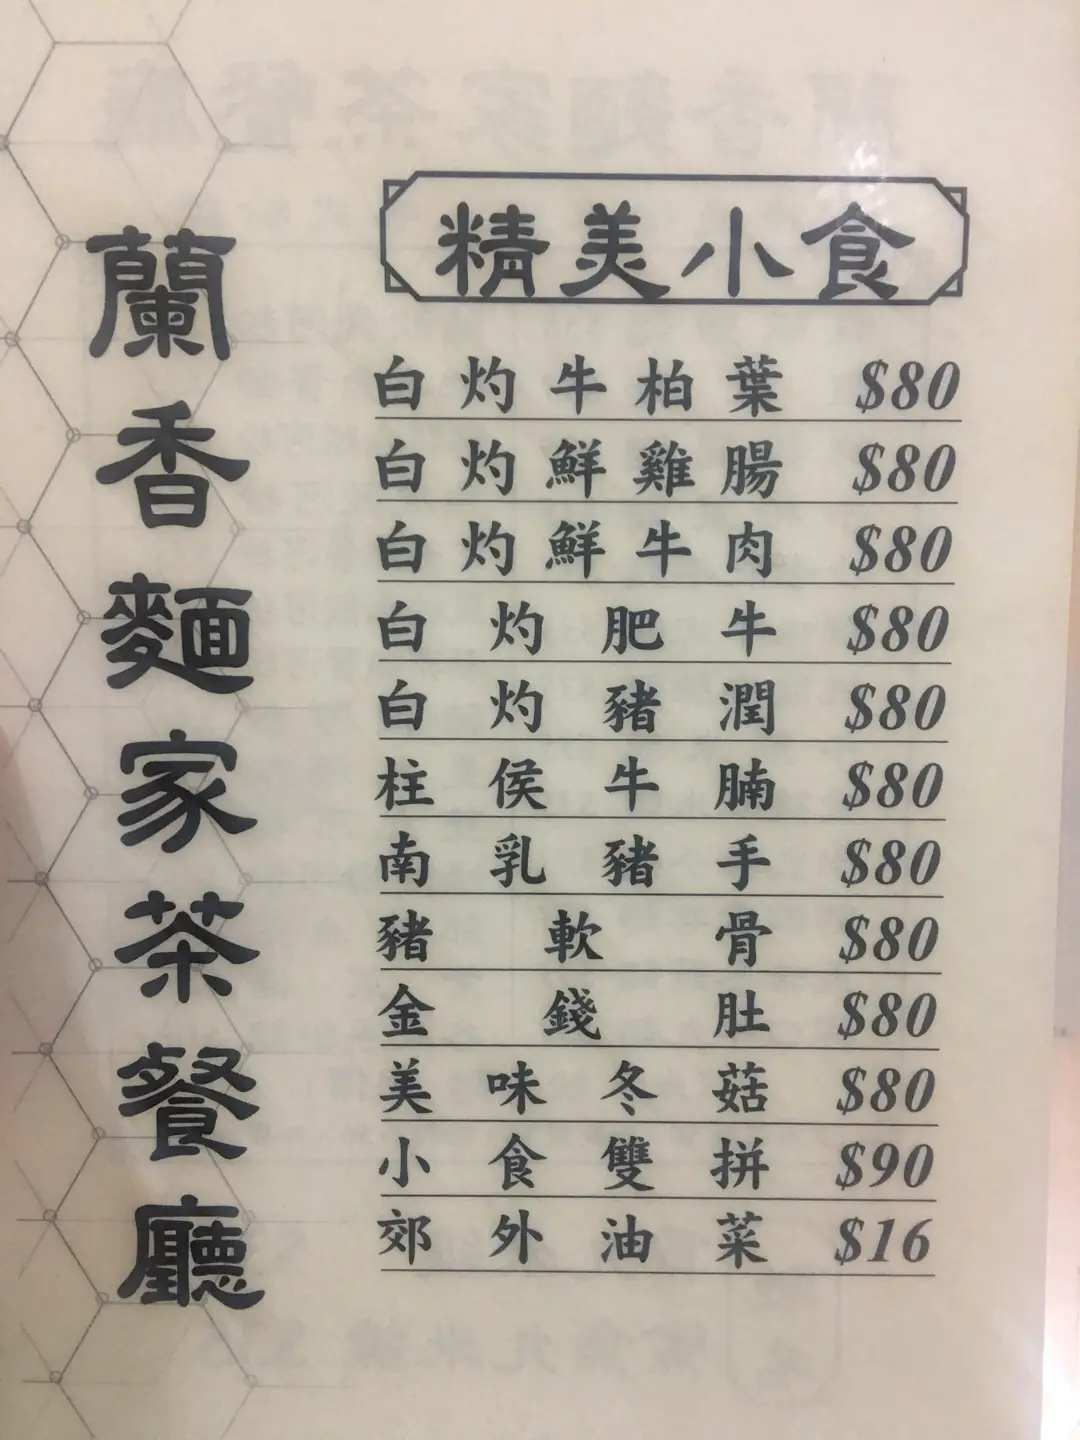 蘭香麵家茶餐廳
精美小食
白灼牛柏葉 $80
白灼鮮雞腸 $80
白灼鮮牛肉 $80
白灼肥牛 $80
白灼豬潤 $80
柱侯牛腩 $80
南乳豬手 $80
豬軟骨 $80
金錢肚 $80
美味冬菇 $80
小食雙拼 $90
郊外油菜 $16